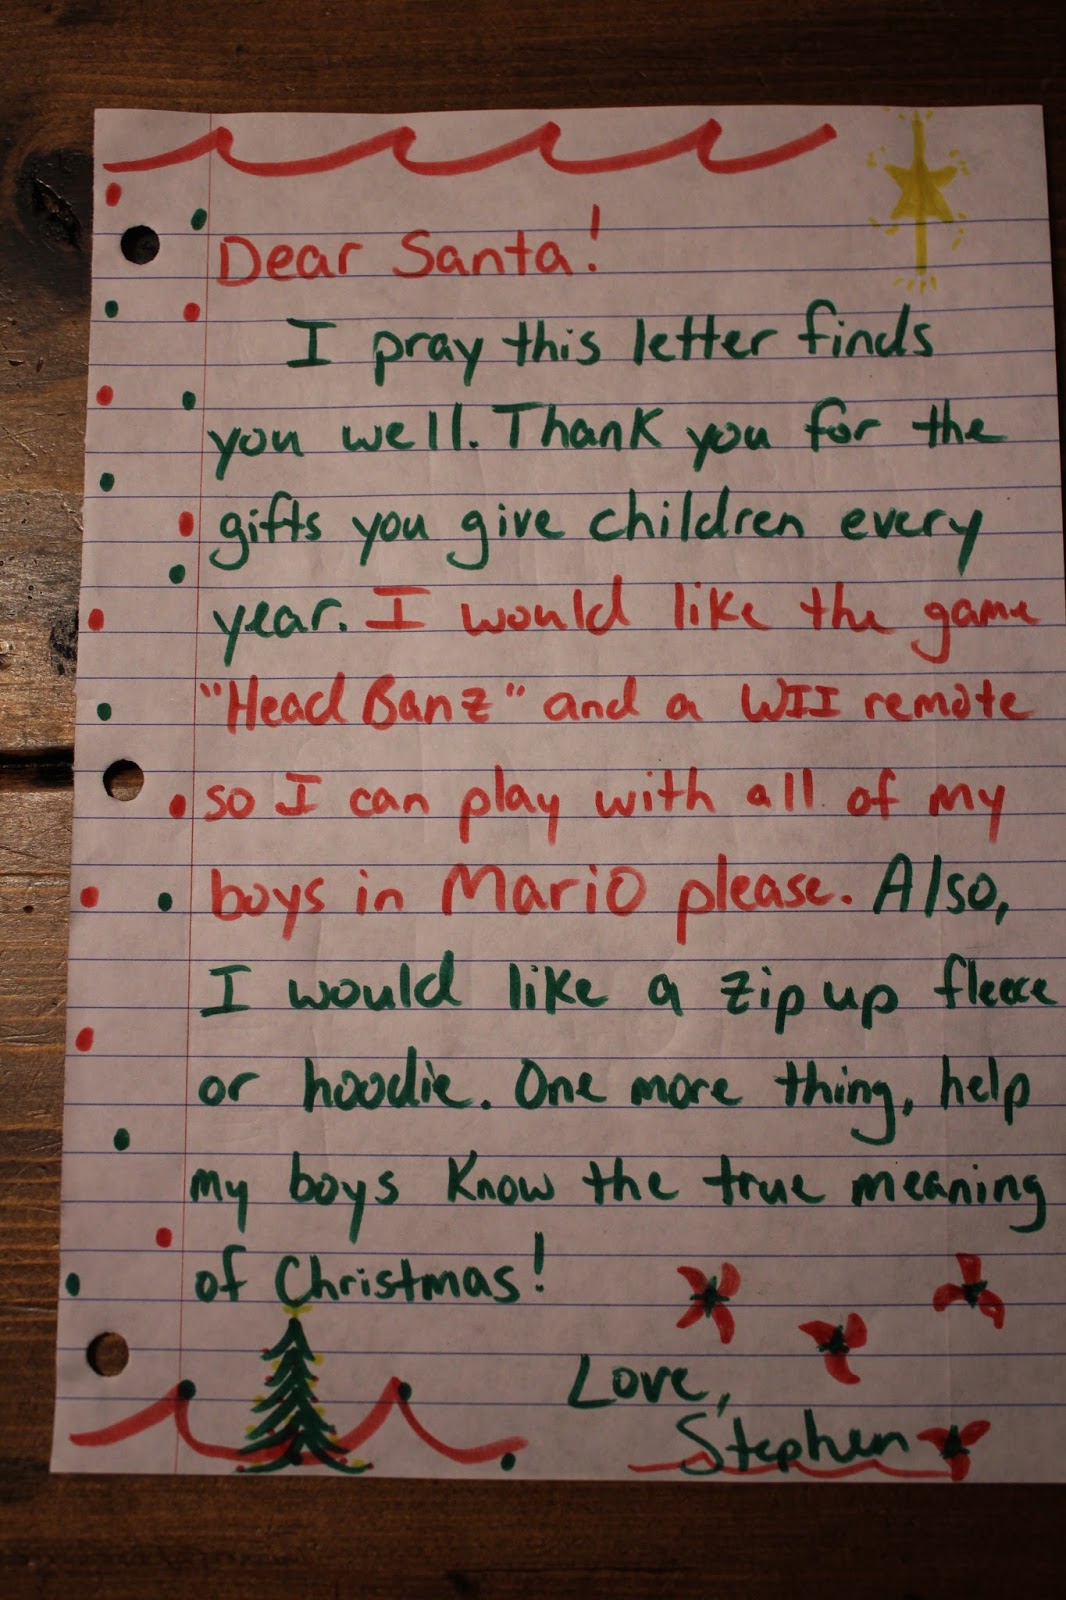 Dear Santa!
I pray this letter finds
you well. Thank you for the
gifts you give children every
year. I would like the game
"Head Banz" and a WII remote
so I can play with all of my
boys in Mario please. Also,
I would like a zip up fleece
or hoodie. One more thing, help
my boys know the true meaning
of Christmas!
Love,
Stephen